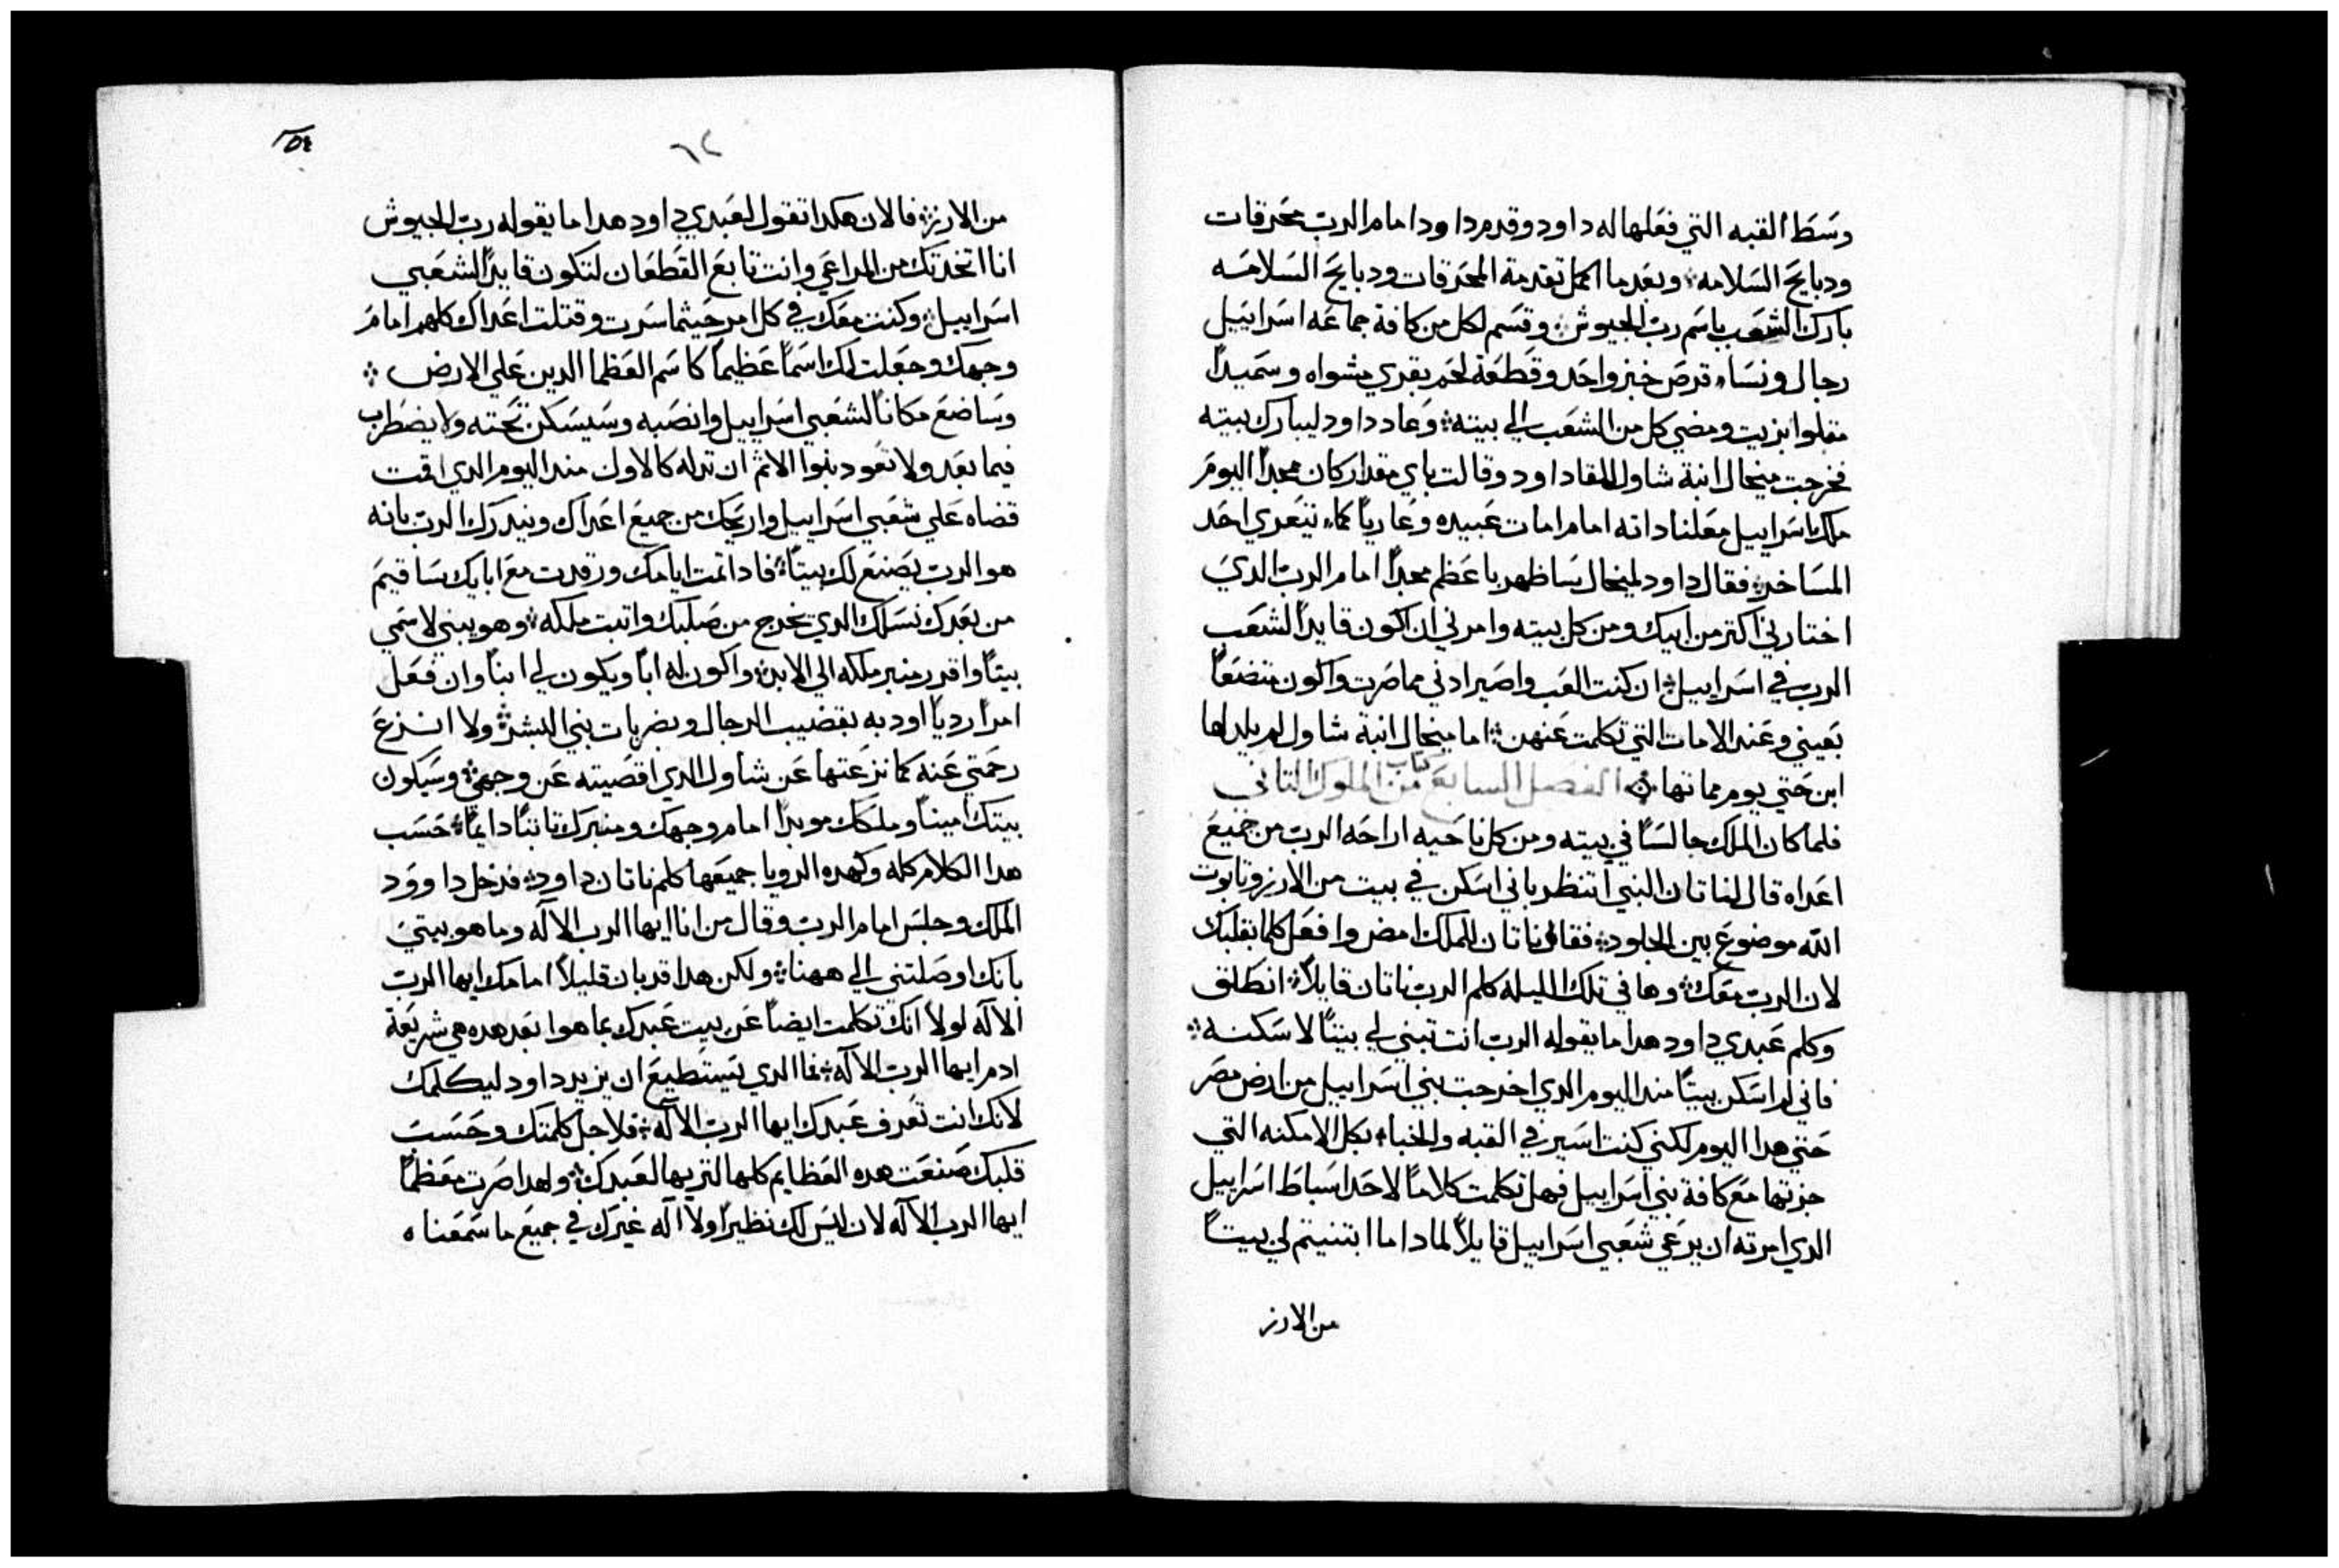 وسَط القبه التي فعَلها له داود وقدم داود امام الرب محَرقات
ودبايح السَلامه ۞ وبعَد ما اكمل تقدمة المحَرقات ودبايح السَلامَه
بارك الشعَب باسَم رب الجيوش ۞ وقسَم لكل من كافة جماعَه اسَراييل
رجال ونسَاء قرصَ خبز واحَد وقطعَة لحَم بقري مشواه وسَميداً
مقلوا بزيت ومضي كل من الشعَب الي بيته ۞ وعَاد داود ليبارك بيته
فخرجت ميخال ابنة شاول للقا داود وقالت باي مقدار كان ممجداً اليومَ
ملك اسَراييل معَلنا داته امام امات عَبيده وعَارياً كماء يتعَري احَد
المسَاخر ۞ فقال داود لميخال سَاظهر باعَظم مجداً امام الرب الديَ
اختارني اكتر من ابيك ومن كل بيته وامرني ان اكون قايداً لشعَب
الرب في اسَراييل ۞ ان كنت العَب واصَير ادني مما صَرت واكون متضعَاً
بعَيني وعَند الامات التي تكلمت عَنهن ۞ اما ميخال ابنة شاول لم يلد لها
ابن حَتي يوم مماتها ۞ الفصَل السَابعَ من كتاب الملوك التاني
فلما كان الملك جالسَاً في بيته ومن كل ناحَيه اراحَه الرب من جميعَ
اعَداه قال لناتان النبي أتنظر باني اسَكن في بيت من الارز وتابوت
الله موضوعَ بين الجلود ۞ فقال ناتان للملك امض وافعَل كلما بقلبك
لان الرب معَك ۞ وها في تلك الليله كلم الرب ناتان قايلاً ۞ انطلق
وكلم عَبدي داود هدا ما يقوله الرب انت تبني لي بيتاً لاسَكنه ۞
فاني لم اسَكن بيتاً مند اليوم الدي اخرجت بني اسَراييل من ارض مصَر
حَتي هدا اليوم لكنني كنت اسَير في القبه والخباء بكل الامكنه التي
جزتها معَ كافة بني اسَراييل فهل تكلمت كلاماً لاحَد اسَباط اسَراييل
الدي امرته ان يرعَي شعَبي اسَراييل قايلاً لمادا ما ابتنيتم لي بيتاً
من الارز
٦٢
من الارز ۞ فالان هكدا تقول لعَبدي داود هدا ما يقوله رب الجيوش
انا اتخدتك من المراعَي وانت تابعَ القطعَان لتكون قايداً لشعَبي
اسَراييل ۞ وكنت معَك في كل امر حَيثما سَرت وقتلت اعَداك كلهم امامَ
وجهك وجعَلت لك اسَماً عَظيماً كاسَم العَظما الدين عَلي الارض ۞
وسَاضعَ مكاناً لشعَبي اسَراييل وانصَبه وسَيسَكن تحَته ولا يضطرب
فيما بعَد ولا تعَود بنوا الاتم ان تدله كالاول مند اليوم الدي اقمت
قضاه عَلي شعَبي اسَراييل واريحَك من جميعَ اعَداك ويندرك الرب بانه
هو الرب يصَنعَ لك بيتاً ۞ فادا تمت ايامك ورقدت معَ ابايك سَاقيمَ
من بعَدك نسَلك الدي يخرج من صَلبك واتبت ملكه ۞ وهو يبني لاسَمي
بيتاً واقرر منبر ملكه الي الابد ۞ واكون له اباً ويكون لي ابناً وان فعَل
امراً ردياً اودبه بقضيب الرجال وبضربات بني البشر ۞ ولا انزعَ
رحَمتي عَنه كما نزعَتها عَن شاول الدي اقصَيته عَن وجهي ۞ وسَيكون
بيتك اميناً وملكك موبداً امام وجهك ومنبرك تابتاً دايماً ۞ حَسَب
هدا الكلام كله وكهده الرويا جميعَها كلم ناتان داود ۞ فدخل داوود
الملك وجلسَ امام الرب وقال من انا ايها الرب الاله وما هو بيتيَ
بانك اوصَلتني الي ههنا ۞ ولكن هدا قد بان قليلاً امامك ايها الرب
الاله لولا انك تكلمت ايضاً عَن بيت عَبدك بما هو ابعَد هده هي شريعَة
ادم ايها الرب الاله ۞ فما الدي يسَتطيعَ ان يزيد داود ليكلمك
لانك انت تعَرف عَبدك ايها الرب الاله ۞ فلاجل كلمتك وحَسَب
قلبك صَنعَت هده العَظايم كلها لتريها لعَبدك ۞ ولهدا صَرت معَظماً
ايها الرب الاله لان ليسَ لك نظيراً ولا اله غيرك في جميعَ ما سَمعَناه